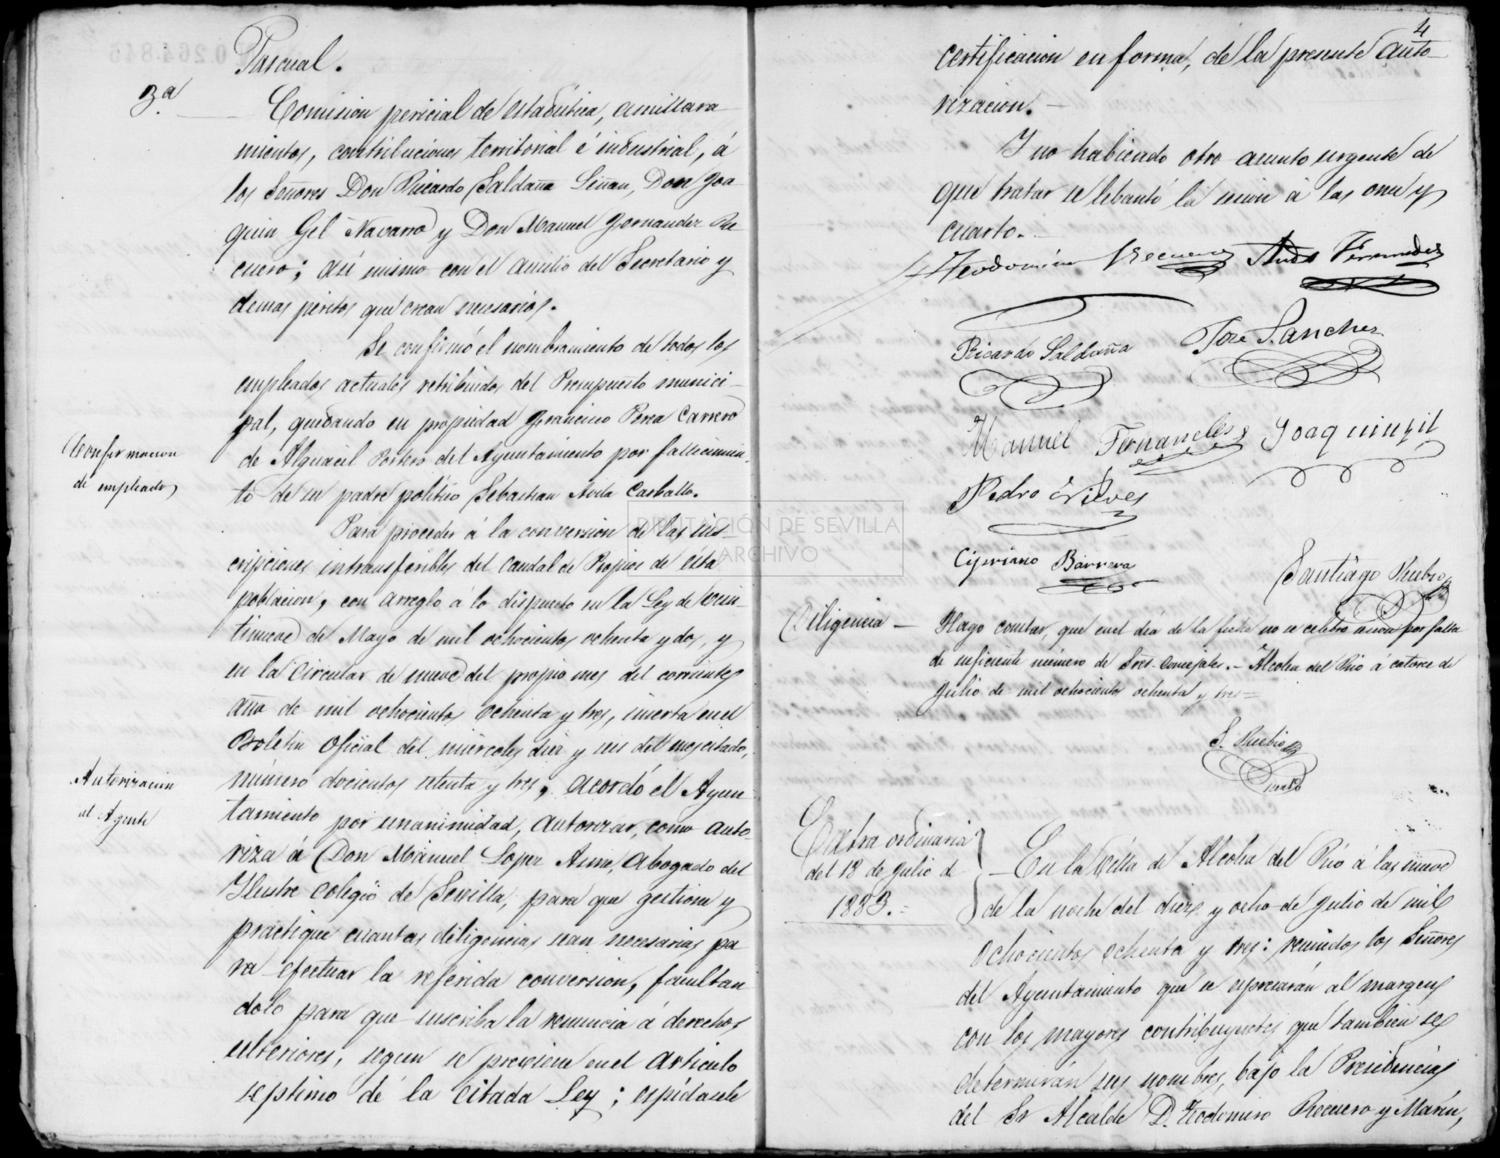 Pascual.
3ª
Comision pericial de estadistica, amillara
mientos, contribuciones territorial é industrial, á
los Señores Don Ricardo Saldaña Liñan, Don Joa
quin Gil Navarro y Don Manuel Fernandez Re
cuero; asi mismo con el ausilio del Secretario y
demas peritos que crean necesarios.
Se confirmó el nombramiento de todos los
empleados actuales retribuidos del Presupuesto munici-
pal, quedando en propiedad Francisco Perea Carrero
de Alguacil Portero del Ayuntamiento por fallecimien-
to de su padre politico Sebastian Avila Carballo.
Confirmacion
de empleados
Para proceder á la conversion de las ins
cripciones intransferibles del caudal de Propios de esta
poblacion, con arreglo á lo dispuesto en la Ley de vein
tinueve de Mayo de mil ochocientos ochenta y dos, y
en la Circular de nueve del propio mes del corriente
año de mil ochocientos ochenta y tres, inserta en el
Boletin Oficial del miercoles diez y seis del mes citado,
número doscientos setenta y tres, acordó el Ayun
tamiento por unanimidad, autorizar, como auto-
riza á Don Manuel Lopez Asme, Abogado del
Ilustre Colegio de Sevilla, para que gestione y
practique cuantas diligencias sean necesarias pa
ra efectuar la referida conversion, facultan
dolo para que suscriba la renuncia á derechos
ulteriores, segun se previene en el articulo
septimo de la citada Ley; espidasele
Autorizacion
al Agente
4
certificacion en forma, de la presente auto-
rizacion.-
Y no habiendo otro asunto urgente de
que tratar se lebantó la sesion á las once y
cuarto.
Teodomiro Recuero Andres Fernandez
Ricardo Saldaña Jose Sanchez
Manuel Fernandez Joaquin Gil
Pedro Nieves
Cipriano Barrera
Santiago Rubio
Diligencia - Hago constar, que en el dia de la fecha no se celebro sesion por falta
de suficiente número de Sres. Concejales.- Alcolea del Rio a catorce de
Julio de mil ochocientos ochenta y tres=
S. Rubio
Extraordinaria
del 18 de Julio de
1883.=
En la Villa de Alcolea del Rio á las nueve
de la noche del diez y ocho de Julio de mil
ochocientos ochenta y tres: reunidos los Señores
del Ayuntamiento que se espresarán al margen
con los mayores contribuyentes que tambien se
determinán sus nombres, bajo la Presidencia
del Sr Alcalde D. Teodomiro Recuero y Marin,
DIPUTACIÓN DE SEVILLA
ARCHIVO